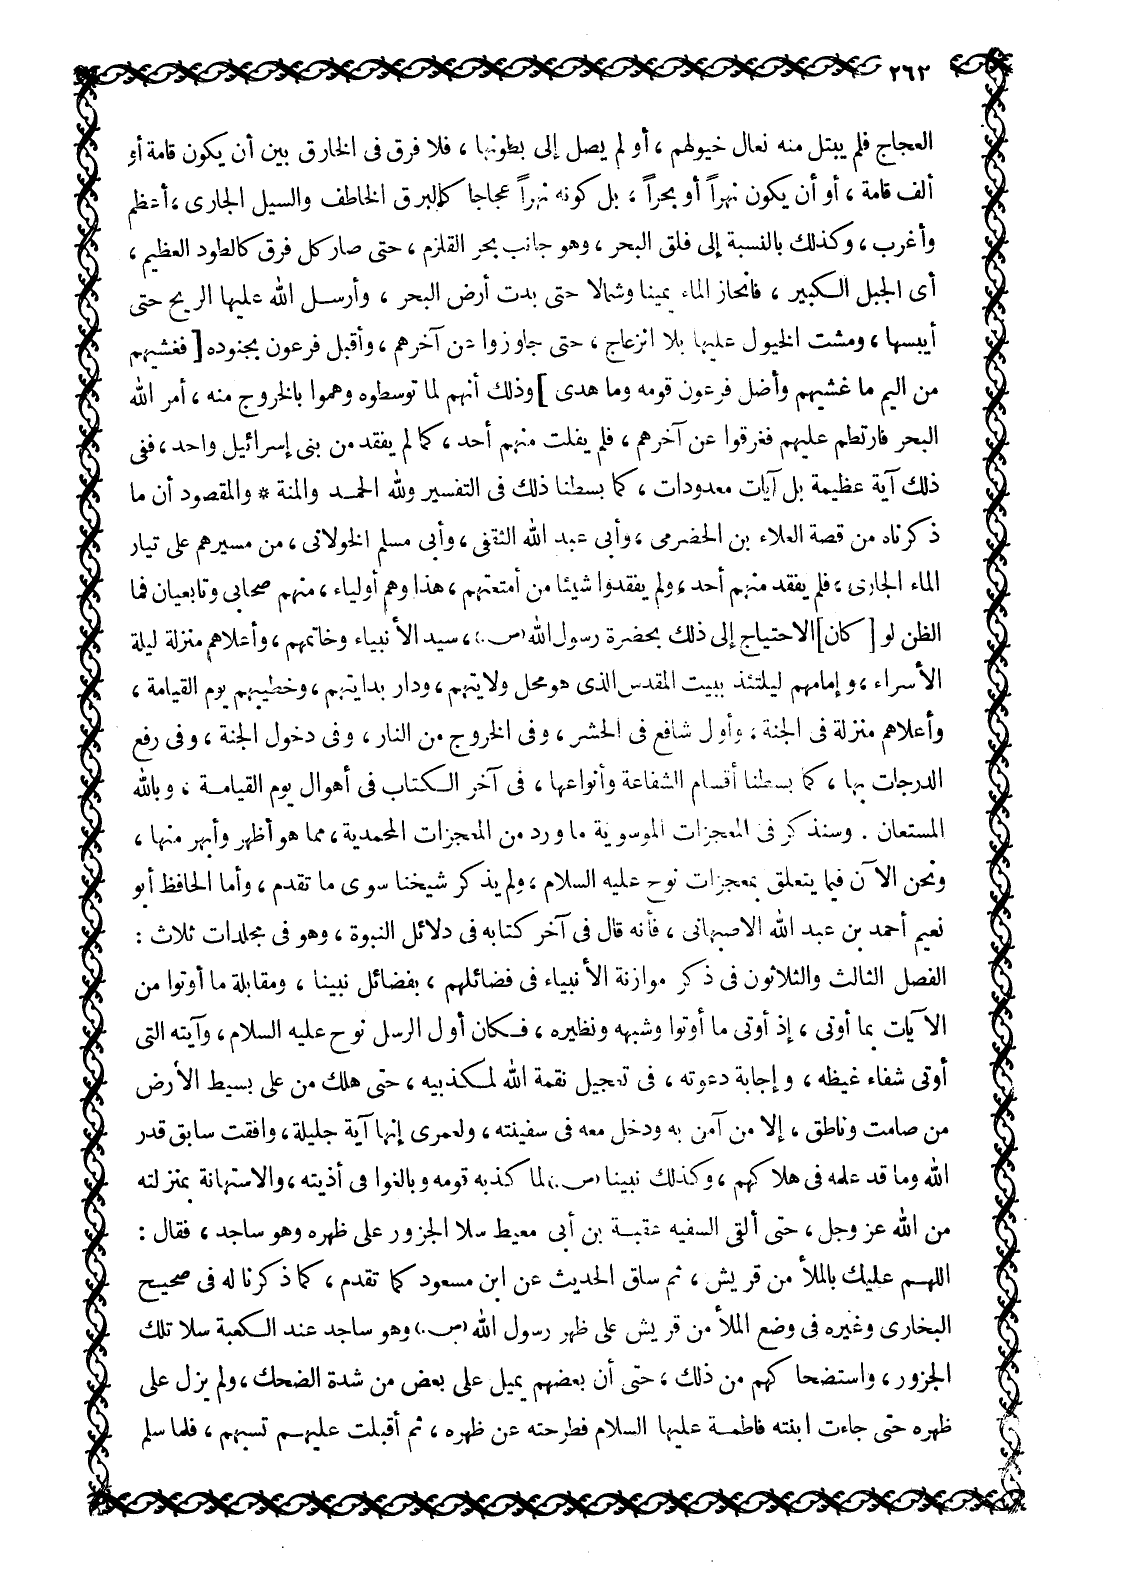 ٢٦٢
العجاج فلم يبتل منه نعال خيولهم ، أو لم يصل إلى بطونها ، فلا فرق فى الخارق بين أن يكون قامة أو
ألف قامة ، أو أن يكون نهراً أو بحراً ، بل كونه نهراً عجاجا كالبرق الخاطف والسيل الجارى ، أعظم
وأغرب ، وكذلك بالنسبة إلى فلق البحر ، وهو جانب بحر القلزم ، حتى صار كل فرق كالطود العظيم ،
أى الجبل الكبير ، فانحاز الماء يمينا وشمالا حتى بدت أرض البحر ، وأرسل الله عليها الريح حتى
أيبسها ، ومشت الخيول عليها بلا انزعاج ، حتى جاوزوا عن آخرهم ، وأقبل فرعون بجنوده [ فغشيهم
من اليم ما غشيهم وأضل فرعون قومه وما هدى ] وذلك أنهم لما توسطوه وهموا بالخروج منه ، أمر الله
البحر فارتطم عليهم فغرقوا عن آخرهم ، فلم يفلت منهم أحد ، كما لم يفقد من بنى إسرائيل واحد ، ففى
ذلك آية عظيمة بل آيات معدودات ، كما بسطنا ذلك فى التفسير ولله الحمد والمنة * والمقصود أن ما
ذكرناه من قصة العلاء بن الحضرمى ، وأبى عبد الله الثقفى ، وأبى مسلم الخولانى ، من مسيرهم على تيار
الماء الجارى ، فلم يفقد منهم أحد ، ولم يفقدوا شيئا من أمتعتهم ، هذا وهم أولياء ، منهم صحابى وتابعيان فما
الظن لو [ كان ] الاحتياج إلى ذلك بحضرة رسول الله (ص.) ، سيد الأنبياء وخاتمهم ، وأعلاهم منزلة ليلة
الأسراء ، وإمامهم ليلتئذ ببيت المقدس الذى هو محل ولايتهم ، ودار بدايتهم ، وخطيبهم يوم القيامة ،
وأعلاهم منزلة فى الجنة ، وأول شافع فى الحشر ، وفى الخروج من النار ، وفى دخول الجنة ، وفى رفع
الدرجات بها ، كما بسطنا أقسام الشفاعة وأنواعها ، فى آخر الكتاب فى أهوال يوم القيامة ، وبالله
المستعان . وسنذكر فى المعجزات الموسوية ما ورد من المعجزات المحمدية ، مما هو أظهر وأبهر منها ،
ونحن الآن فيما يتعلق بمعجزات نوح عليه السلام ، ولم يذكر شيخنا سوى ما تقدم ، وأما الحافظ أبو
نعيم أحمد بن عبد الله الاصبهانى ، فأنه قال فى آخر كتابه فى دلائل النبوة ، وهو فى مجلدات ثلاث :
الفصل الثالث والثلاثون فى ذكر موازنة الأنبياء فى فضائلهم ، بفضائل نبينا ، ومقابلة ما أوتوا من
الآيات بما أوتى ، إذ أوتى ما أوتوا وشبهه ونظيره ، فكان أول الرسل نوح عليه السلام ، وآيته التى
أوتى شفاء غيظه ، وإجابة دعوته ، فى تعجيل نقمة الله لمكذبيه ، حتى هلك من على بسيط الأرض
من صامت وناطق ، إلا من آمن به ودخل معه فى سفينته ، ولعمرى إنها آية جليلة ، وافقت سابق قدر
الله وما قد علمه فى هلاكهم ، وكذلك نبينا (ص.) لما كذبه قومه وبالغوا فى أذيته ، والاستهانة بمنزلته
من الله عز وجل ، حتى ألقى السفيه عقبة بن أبى معيط سلا الجزور على ظهره وهو ساجد ، فقال :
اللهم عليك بالملأ من قريش ، ثم ساق الحديث عن ابن مسعود كما تقدم ، كما ذكرنا له فى صحيح
البخارى وغيره فى وضع الملأ من قريش على ظهر رسول الله (ص.) وهو ساجد عند الكعبة سلا تلك
الجزور ، واستضحاكهم من ذلك ، حتى أن بعضهم يميل على بعض من شدة الضحك ، ولم يزل على
ظهره حتى جاءت ابنته فاطمة عليها السلام فطرحته عن ظهره ، ثم أقبلت عليهم تسبهم ، فلما سلم